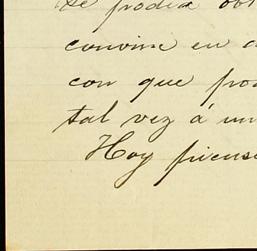 se podia ob
convine en
con que pro
tal vez á un
Hoy piens